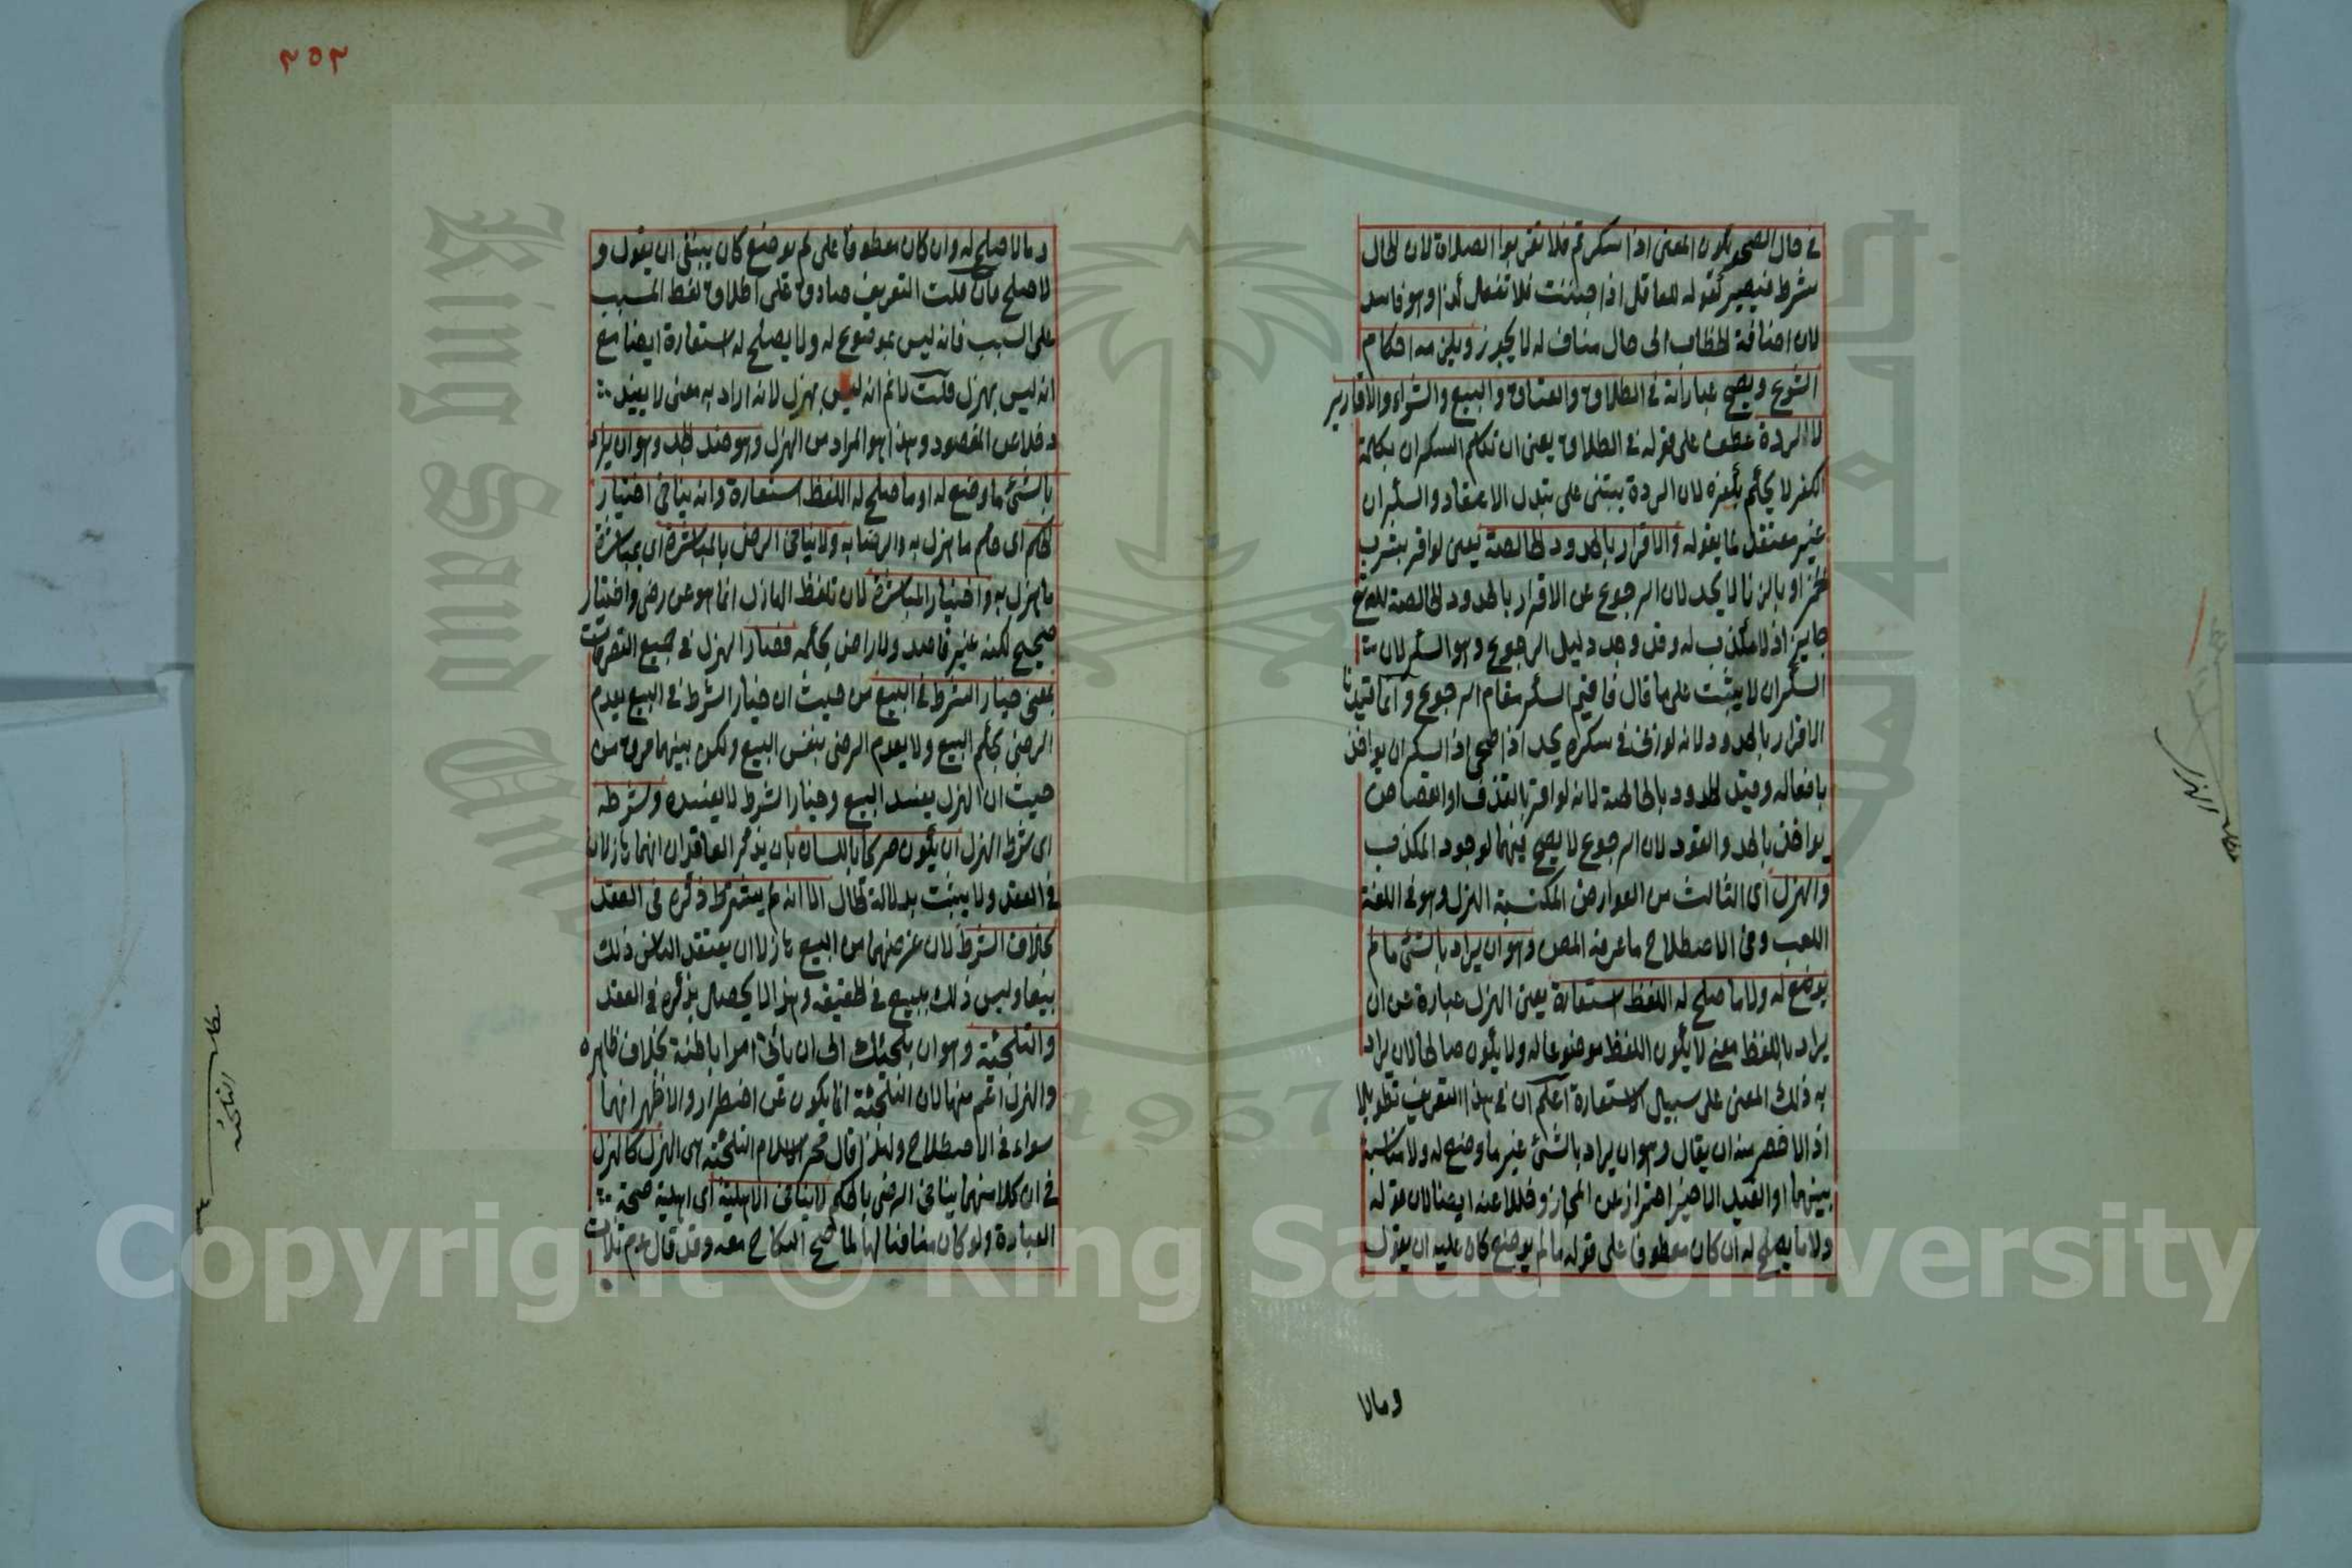 في حال الصحو يكون المعنى اذا سكرتم فلا تقربوا الصلاة لان الحال
شرط فيصير كقوله للعاقل اذا جننت فلا تفعل كذا وهو فاسد
لان اضافة الخطاب الى حال مناف له لا يجوز ويلزمه احكام
الشرع ويصح عباراته في الطلاق والعتاق والبيع والشراء والاقارير
لا الردة عطف على قوله في الطلاق يعني ان تكلم السكران بكلمة
الكفر لا يحكم بكفره لان الردة يبتنى على تبدل الاعتقاد والسكران
غير معتقد لما يقوله والاقرار بالحدود الخالصة يعني لو اقر بشرب
الخمر او بالزنا لا يحد لان الرجوع عن الاقرار بالحدود الخالصة لله تع
جايز اذ لا مكذب له وقد وجد دليل الرجوع وهو السكر لان
السكران لا يثبت على ما قال فاقيم السكر مقام الرجوع وانما قيدنا
الاقرار بالحدود لانه لو زنى في سكره يحد اذا صحى اذ السكران يواخذ
بافعاله وقيد الحدود بالخالصة لانه لو اقر بالقذف او القصاص
يواخذ بالحد والقود لان الرجوع لا يصح فيهما لوجود المكذب
والهزل اى الثالث من العوارض المكتسبة الهزل وهو في اللغة
اللعب وفي الاصطلاح ما عرفه المص وهو ان يراد بالشئ ما لم
يوضع له ولا ما صلح له اللفظ استعارة يعني الهزل عبارة عن ان
يراد باللفظ معنى لا يكون اللفظ موضوعا له ولا يكون صالحا لان يراد
به ذلك المعنى على سبيل الاستعارة اعلم ان في هذا التعريف تطويلا
اذ الاخصر منه ان يقال وهو ان يراد بالشئ غير ما وضع له ولا مناسبة
بينهما او القيد الاخير احتراز عن المجاز وخللا عنه ايضا لان قوله
ولا ما يصلح له ان كان معطوفا على قوله ما لم يوضع كان عليه ان يقول
وما لا
مطلب الهزل
٢٥٢
وما لا صلح له وان كان معطوفا على لم يوضع كان ينبغي ان يقول و
لا صلح فان قلت التعريف صادق على اطلاق لفظ المسبب
على السبب فانه ليس بموضوع له ولا يصلح له استعارة ايضا مع
انه ليس بهزل قلت لا نم انه ليس بهزل لانه اراد به معنى لا يفيد
دخلا عن المقصود وهذا هو المراد من الهزل وهو ضد الجد وهو ان يراد
بالشئ ما وضع له او ما صلح له اللفظ استعارة وانه ينافي اختيار
الحكم اى حكم ما هزل به والرضا به ولا ينافي الرضى بالمباشرة اى بمباشرة
ما هزل به واختيار المباشرة لان تلفظ الهازل انما هو عن رضى واختيار
صحيح لكنه غير قاصد ولا راض بحكمه فصار الهزل في جميع التصرفات
بمعنى خيار الشرط في البيع من حيث ان خيار الشرط في البيع يعدم
الرضى بحكم البيع ولا يعدم الرضى بنفس البيع ولكن بينهما فرق من
حيث ان الهزل يفسد البيع وخيار الشرط لا يفسده وشرطه
اى شرط الهزل ان يكون صريحا باللسان بان يذكر العاقدان انهما هازلان
في العقد ولا يثبت بدلالة الحال الا انه لم يشترط ذكره في العقد
بخلاف الشرط لان غرضهما من البيع هازلا ان يعتقد الناس ذلك
بيعا وليس ذلك ببيع في الحقيقة وهذا لا يحصل بذكره في العقد
والتلجئة وهو ان يلجئك الى ان ياتى امرا باطنه بخلاف ظاهره
والهزل اعم منها لان التلجئة انما يكون عن اضطرار والاظهر انهما
سواء في الاصطلاح ولهذا قال فخر الاسلام التلجئة هى الهزل كالهزل
في ان كلا منهما ينافي الرضى بالحكم لا ينافي الاهلية اى اهلية صحة
العبادة ولو كان منافيا لها لما صح النكاح معه وقد قال عم ثلاث
مطلب التلجئة
Copyright © King Saud University
1957